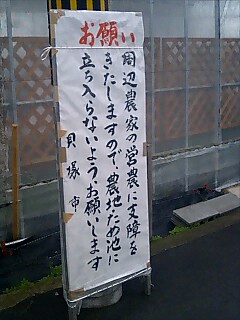 お願い
周辺農家の営農に支障を
きたしますので、農地ため池に
立ち入らないようお願いします
貝塚市